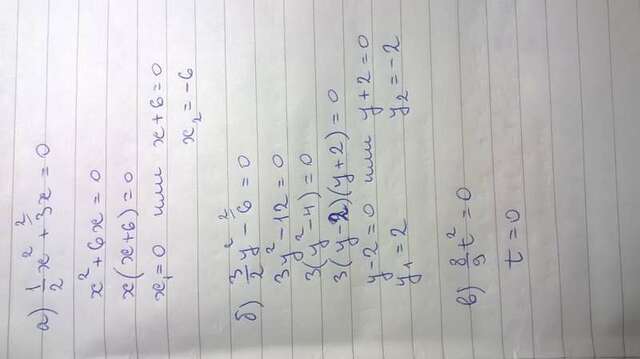 а) 1/2 x² + 3x = 0
x² + 6x = 0
x(x+6) = 0
x₁ = 0 или x + 6 = 0
x₂ = -6
б) 3/2 y² - 6 = 0
3y² - 12 = 0
3(y² - 4) = 0
3(y - 2)(y + 2) = 0
y - 2 = 0 или y + 2 = 0
y₁ = 2 y₂ = -2
в) 8/9 t² = 0
t = 0